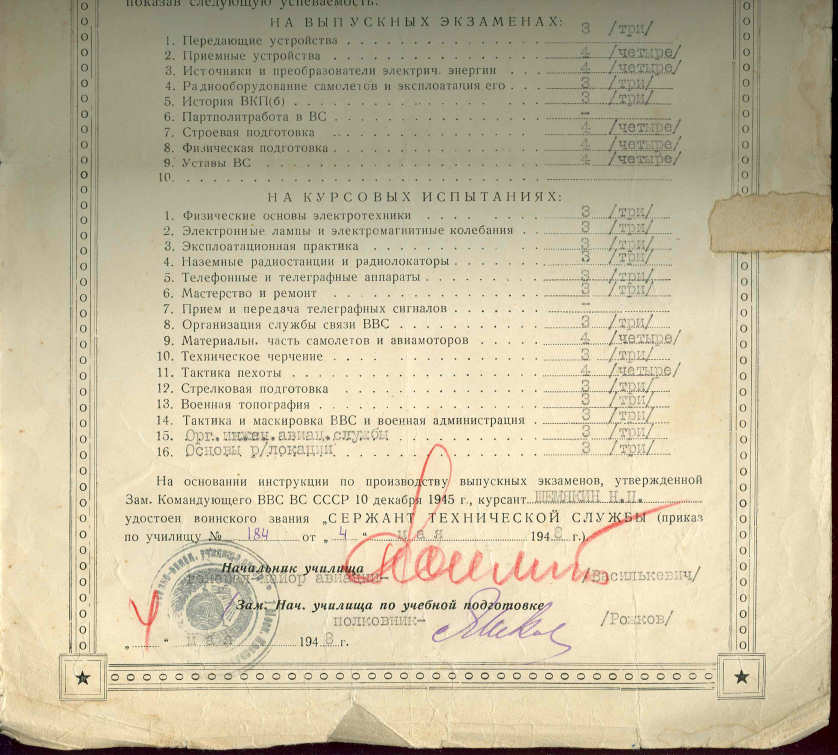 показав следующую успеваемость:
НА ВЫПУСКНЫХ ЭКЗАМЕНАХ:
1. Передающие устройства . . . 3 /три/
2. Приемные устройства . . . 4 /четыре/
3. Источники и преобразователи электрич. энергии . . . 4 /четыре/
4. Радиооборудование самолетов и эксплоатация его . . . 3 /три/
5. История ВКП(б) . . . 3 /три/
6. Партполитработа в ВС . . . –
7. Строевая подготовка . . . 4 /четыре/
8. Физическая подготовка . . . 4 /четыре/
9. Уставы ВС . . . 4 /четыре/
10. . . .
НА КУРСОВЫХ ИСПЫТАНИЯХ:
1. Физические основы электротехники . . . 3 /три/
2. Электронные лампы и электромагнитные колебания . . . 3 /три/
3. Эксплоатационная практика . . . 3 /три/
4. Наземные радиостанции и радиолокаторы . . . 3 /три/
5. Телефонные и телеграфные аппараты . . . 3 /три/
6. Мастерство и ремонт . . . 3 /три/
7. Прием и передача телеграфных сигналов . . . –
8. Организация службы связи ВВС . . . 3 /три/
9. Материальн. часть самолетов и авиамоторов . . . 4 /четыре/
10. Техническое черчение . . . 3 /три/
11. Тактика пехоты . . . 4 /четыре/
12. Стрелковая подготовка . . . 3 /три/
13. Военная топография . . . 3 /три/
14. Тактика и маскировка ВВС и военная администрация . . . 3 /три/
15. Орг.инжен.авиац.службы 3 /три/
16. Основы р/локации 3 /три/
На основании инструкции по производству выпускных экзаменов, утвержденной
Зам. Командующего ВВС ВС СССР 10 декабря 1945 г., курсант ШЕМЯКИН Н.П.
удостоен воинского звания „СЕРЖАНТ ТЕХНИЧЕСКОЙ СЛУЖБЫ (приказ
по училищу № 184 от „ 4 " мая 1948 г.).
Начальник училища
генерал-майор авиации- /Василькевич/
Зам. Нач. училища по учебной подготовке
полковник- /Рожков/
4
„ " мая 1948 г.